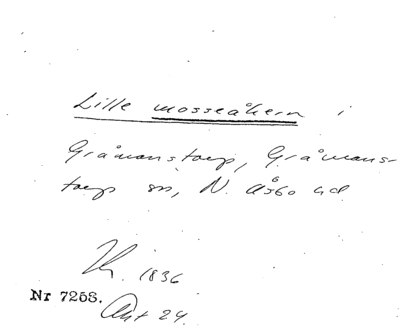 Lille mosseåkern i
Gråmanstorp, Gråmans-
torp sn, N. Åsbo hd.
1836
Nr 7258. Akt 24.